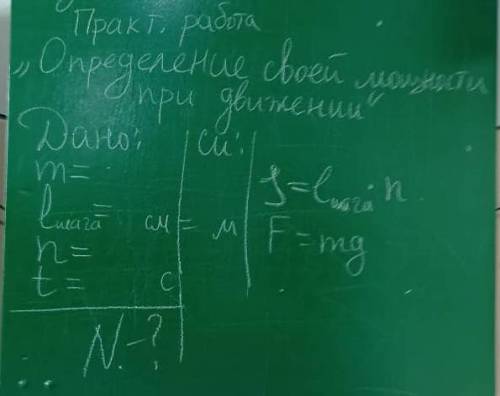 Практ. работа
„Определение своей мощности
при движении“
Дано:
m=
lшага= см = м
n=
t= с
N-?
СИ:
S=lшага·n
F=mg